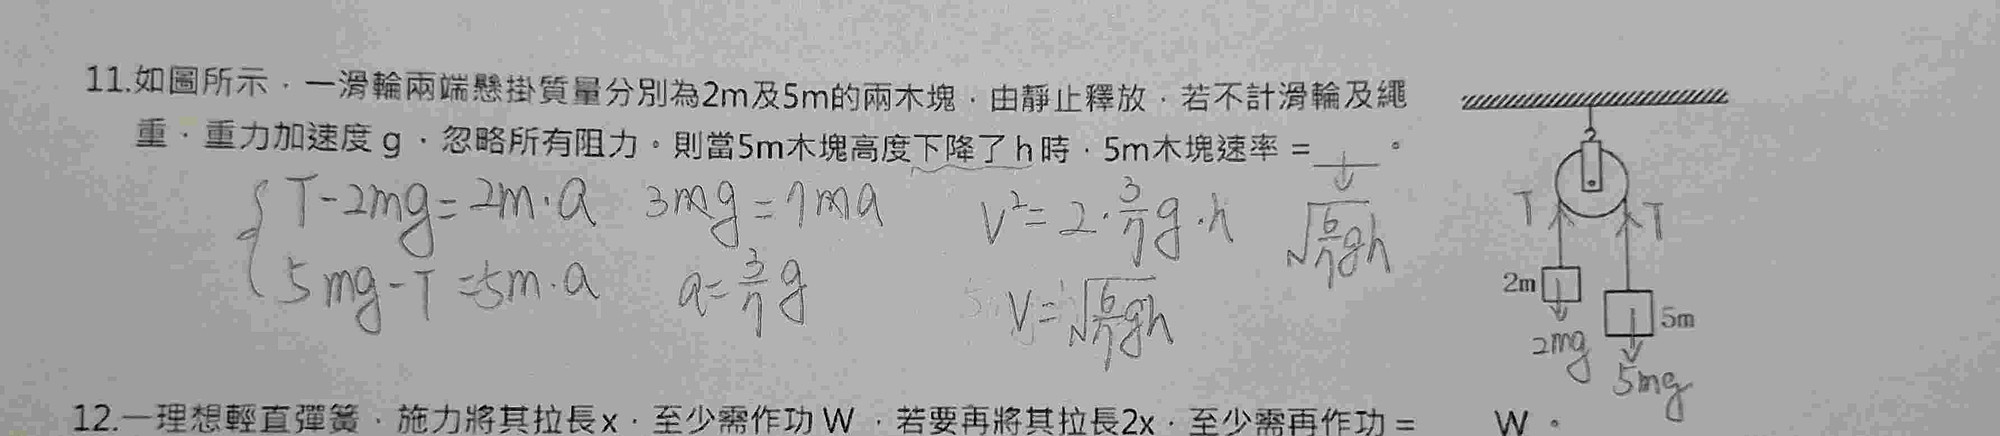 11.如圖所示，一滑輪兩端懸掛質量分別為2m及5m的兩木塊，由靜止釋放，若不計滑輪及繩
重，重力加速度 g，忽略所有阻力。則當5m木塊高度下降了 h 時，5m木塊速率 = ___。
T-2mg=2m·a 3mg=7ma V²=2·3/7g·h √(6/7gh)
5mg-T=5m·a a=3/7g V=√(6/7gh)
T T
2m
5m
2mg
5mg
12.一理想輕直彈簧，施力將其拉長x，至少需作功 W ，若要再將其拉長2x，至少需再作功 = W。